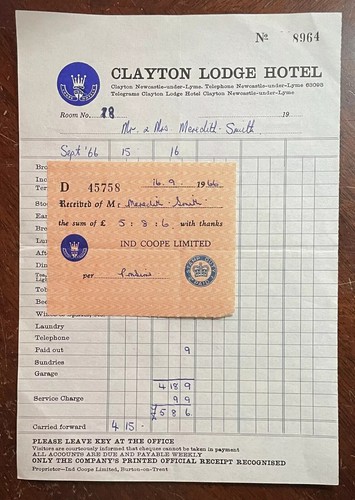 No 8964
CLAYTON LODGE HOTEL
Clayton Newcastle-under-Lyme. Telephone Newcastle-under-Lyme 63093
Telegrams Clayton Lodge Hotel Clayton Newcastle-under-Lyme
Room No. 28 19
Mr. & Mrs Meredith-Smith
Sept '66 15 16
D 45758 16.9.1966
Received of Mr Meredith-Smith
the sum of £ 5:8:6 with thanks
IND COOPE LIMITED
per
STAMP DUTY PAID
Laundry
Telephone
Paid out 9
Sundries
Garage
4 18 9
Service Charge 9 9
£5 8 6
Carried forward 4 15 -
PLEASE LEAVE KEY AT THE OFFICE
Visitors are courteously informed that cheques cannot be taken in payment
ALL ACCOUNTS ARE DUE AND PAYABLE WEEKLY
ONLY THE COMPANY'S PRINTED OFFICIAL RECEIPT RECOGNISED
Proprietor—Ind Coope Limited, Burton-on-Trent